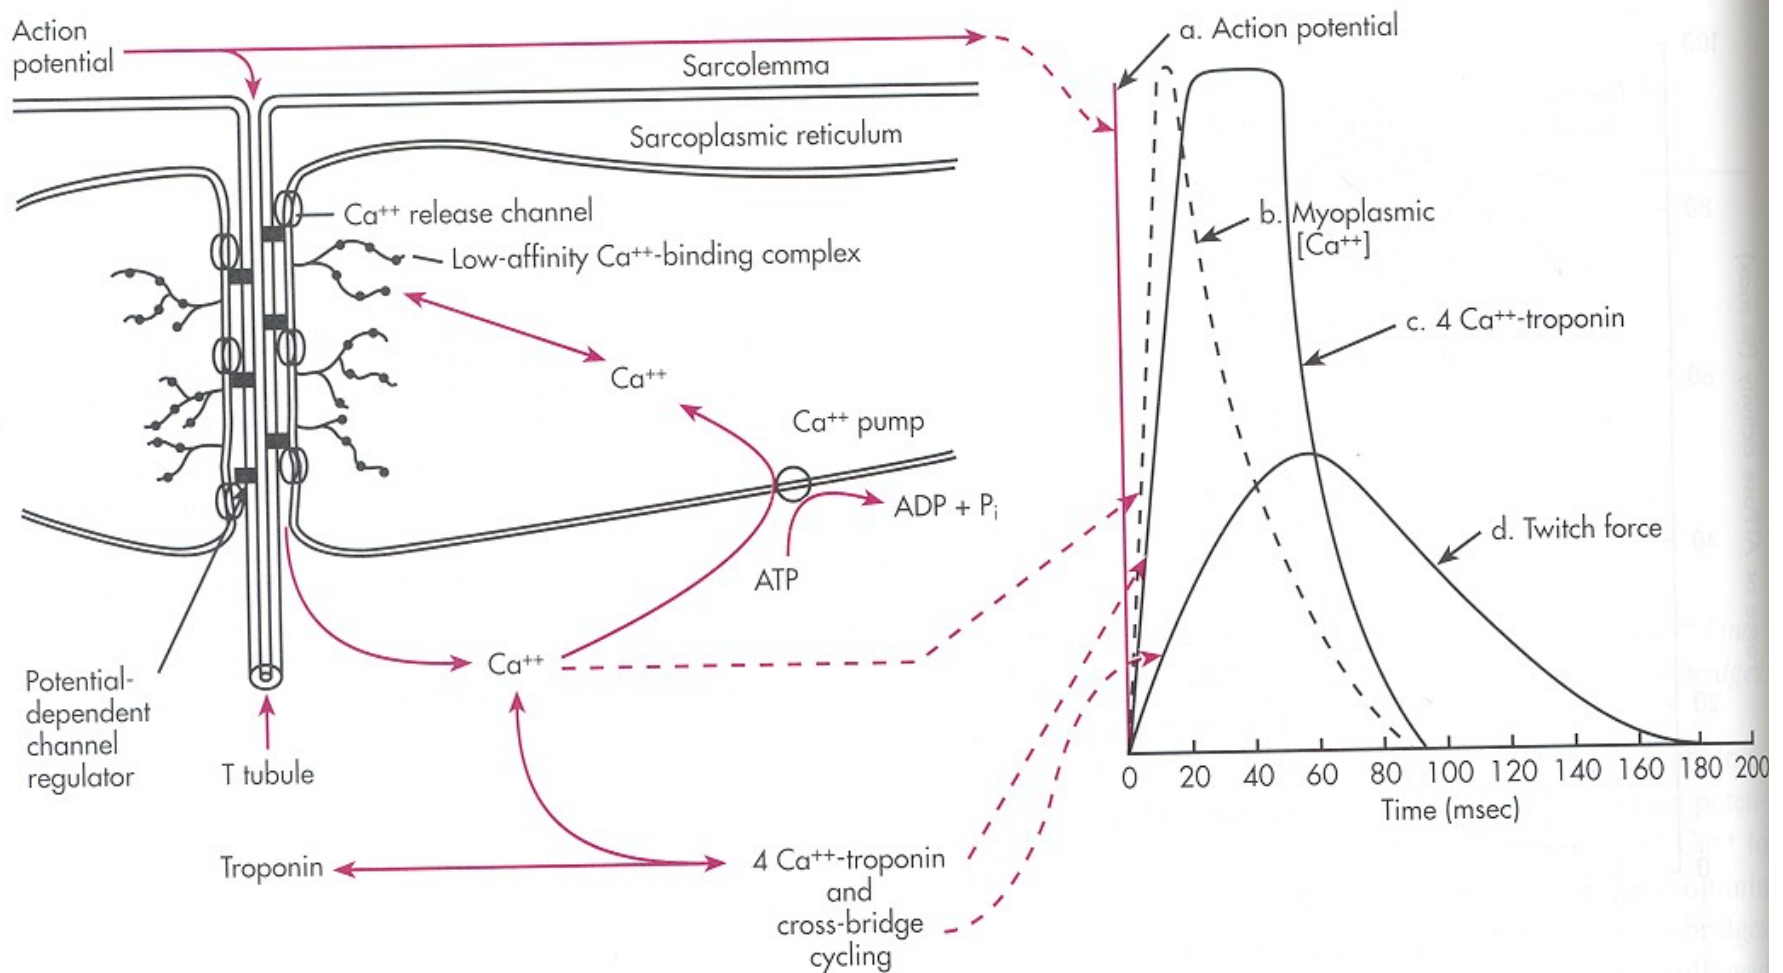 Action
potential
Sarcolemma
Sarcoplasmic reticulum
Ca⁺⁺ release channel
Low-affinity Ca⁺⁺-binding complex
Ca⁺⁺
Ca⁺⁺ pump
ADP + Pᵢ
ATP
Ca⁺⁺
Potential-
dependent
channel
regulator
T tubule
Troponin
4 Ca⁺⁺-troponin
and
cross-bridge
cycling
a. Action potential
b. Myoplasmic
[Ca⁺⁺]
c. 4 Ca⁺⁺-troponin
d. Twitch force
0 20 40 60 80 100 120 140 160 180 200
Time (msec)